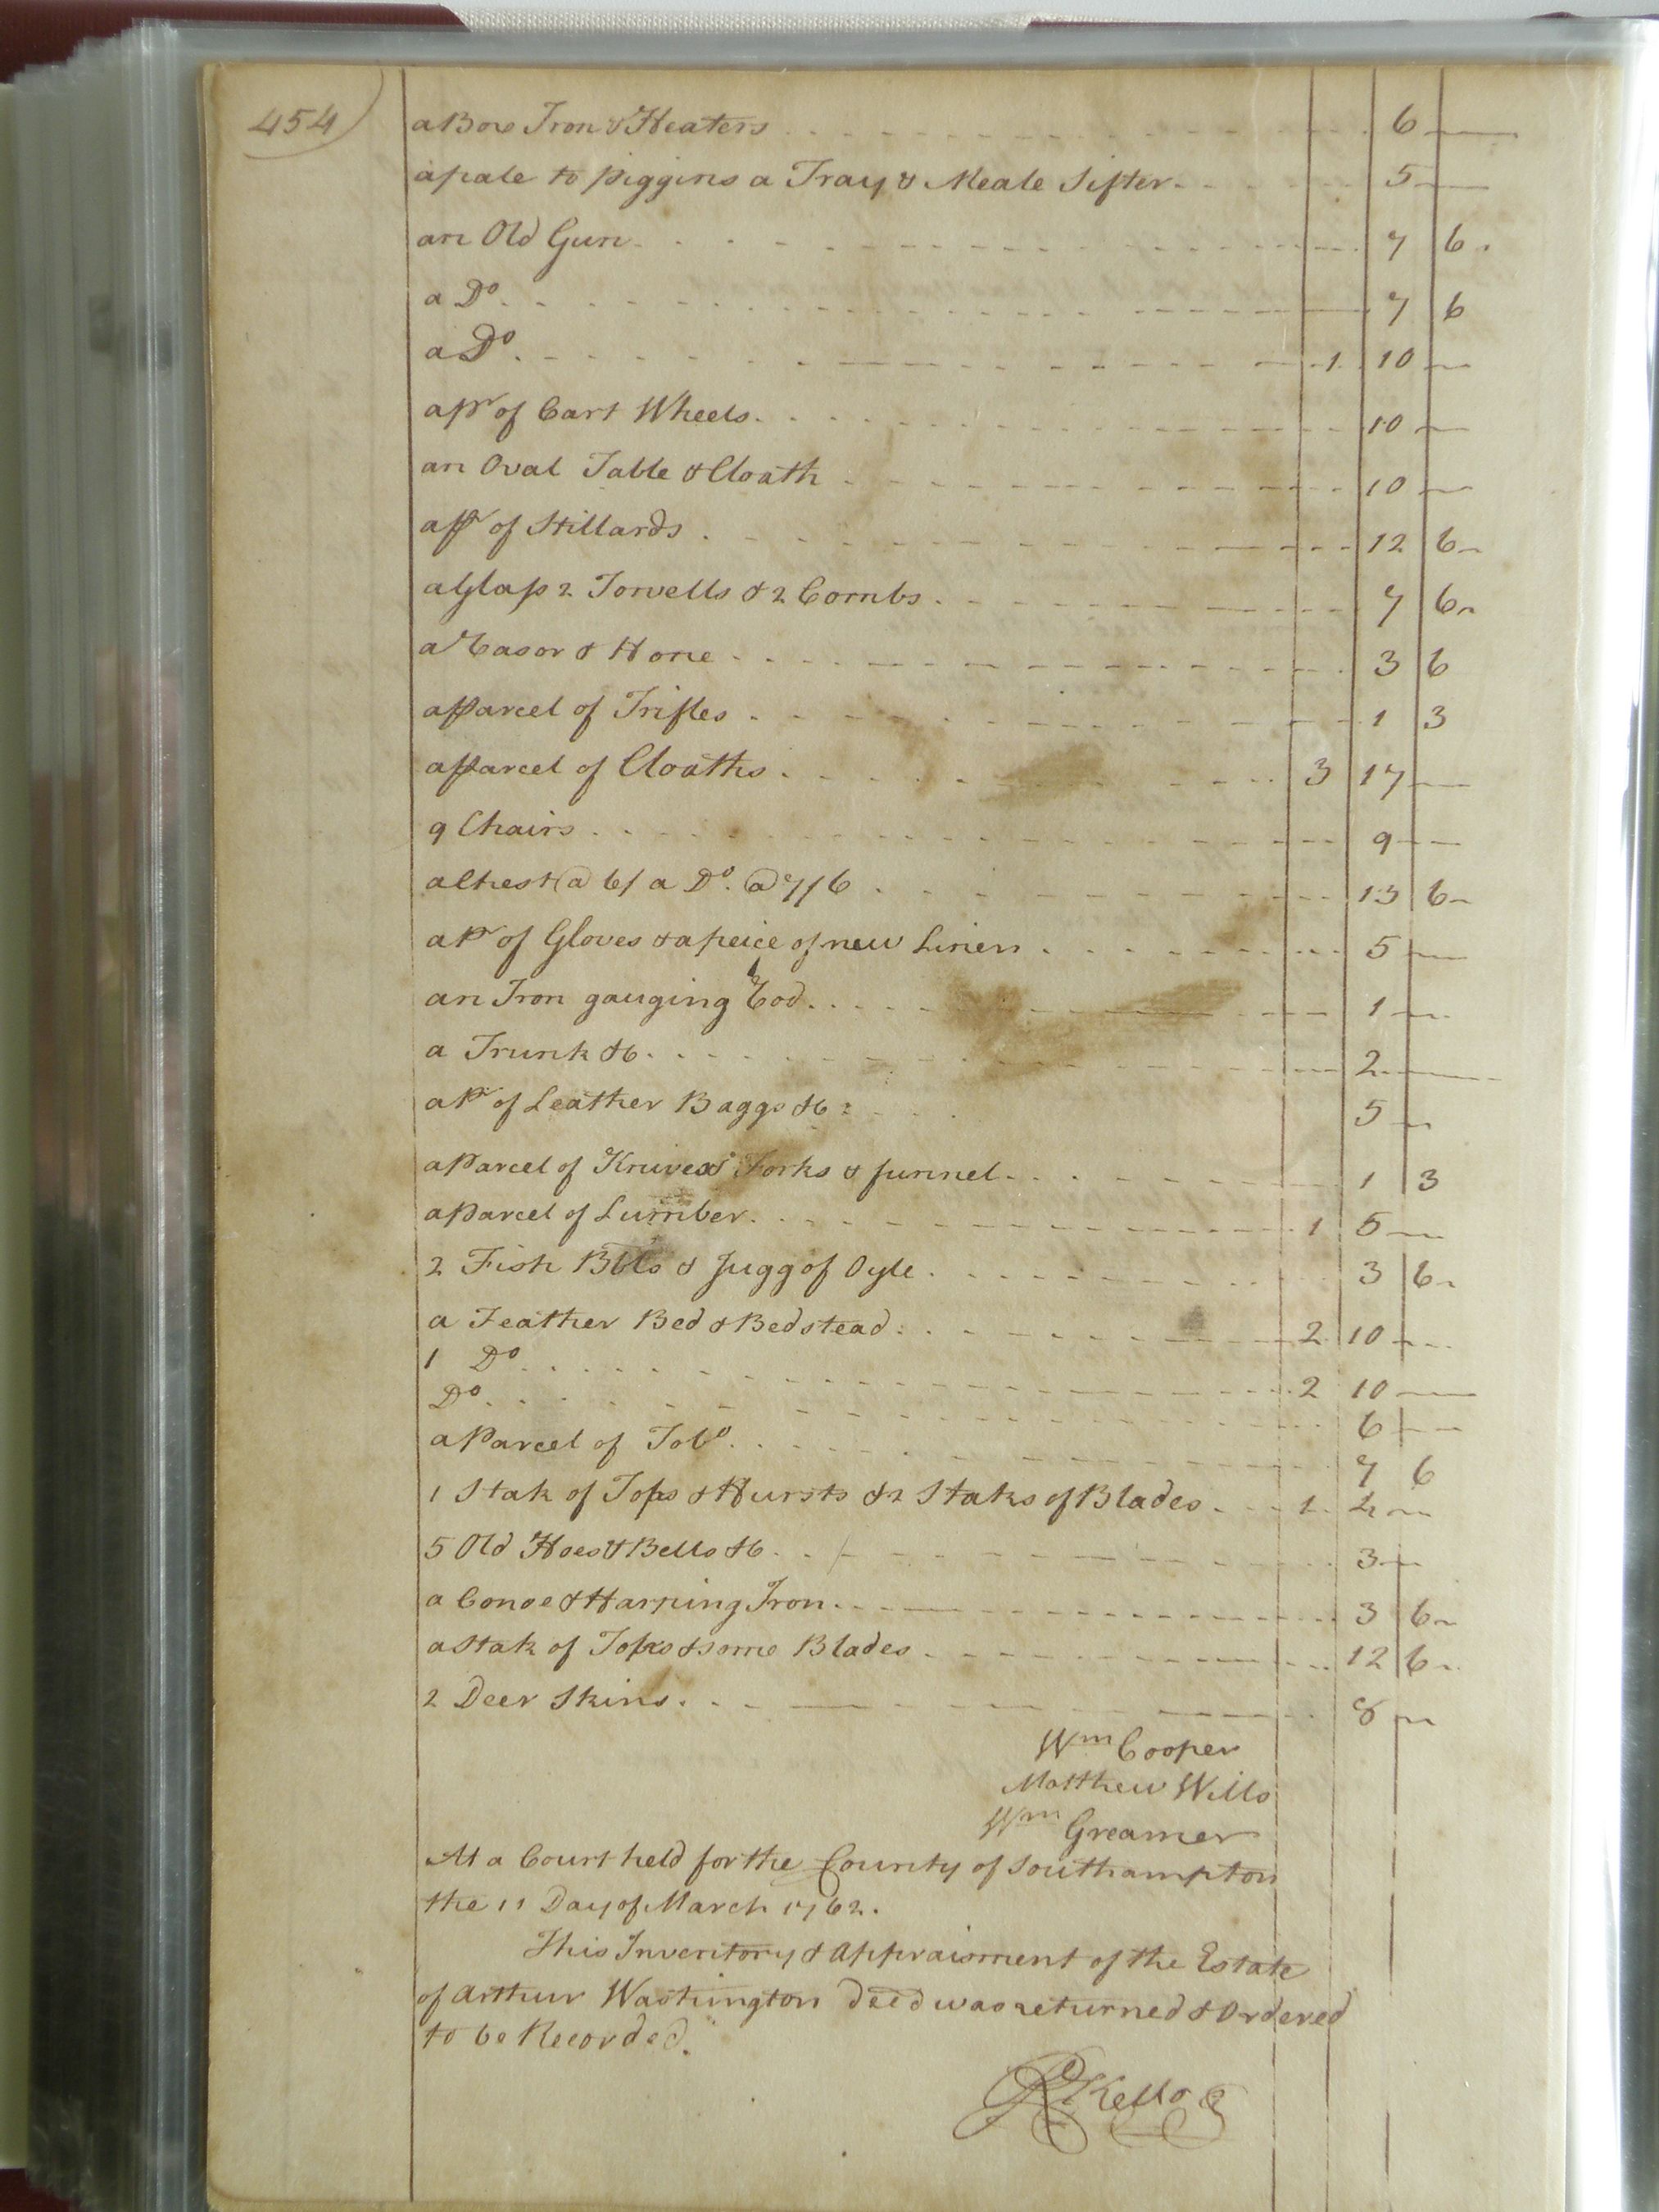 454
a Box Iron & Heaters 6
a pale to piggins a Tray & Meale Sifter 5
an Old Gun 7 6
a Do 7 6
a Do 1 10
a pr of Cart Wheels 10
an Oval Table & Cloath 10
a pr of Stillards 12 6
a Glass 2 Towells & 2 Combs 7 6
a Rasor & Hone 3 6
a Parcel of Trifles 1 3
a Parcel of Cloaths 3 17
9 Chairs 9
a Chest @ 6/ a Do. @ 7/6 13 6
a Pr of Gloves & a peice of new Linen 5
an Iron gauging Rod 1
a Trunk &c 2
a Pr of Leather Baggs &c 5
a Parcel of Knives & Forks & funnel 1 3
a Parcel of Lumber 1 5
2 Fish Bbls & Jugg of Oyle 3 6
a Feather Bed & Bedstead 2 10
1 Do 2 10
Do 6
a Parcel of Tobo 7 6
1 Stak of Tops & Hursts & 2 Staks of Blades 1
5 Old Hoes & Bells &c 3
a Conoe & Harping Iron 3 6
a Stak of Tops & some Blades 12 6
2 Deer Skins 8
Wm Cooper
Matthew Wills
Wm Greamer
At a Court held for the County of Southampton
the 11 Day of March 1762.
This Inventory & Appraisment of the Estate
of Arthur Washington deed was returned & Ordered
to be Recorded.
Rd Kello